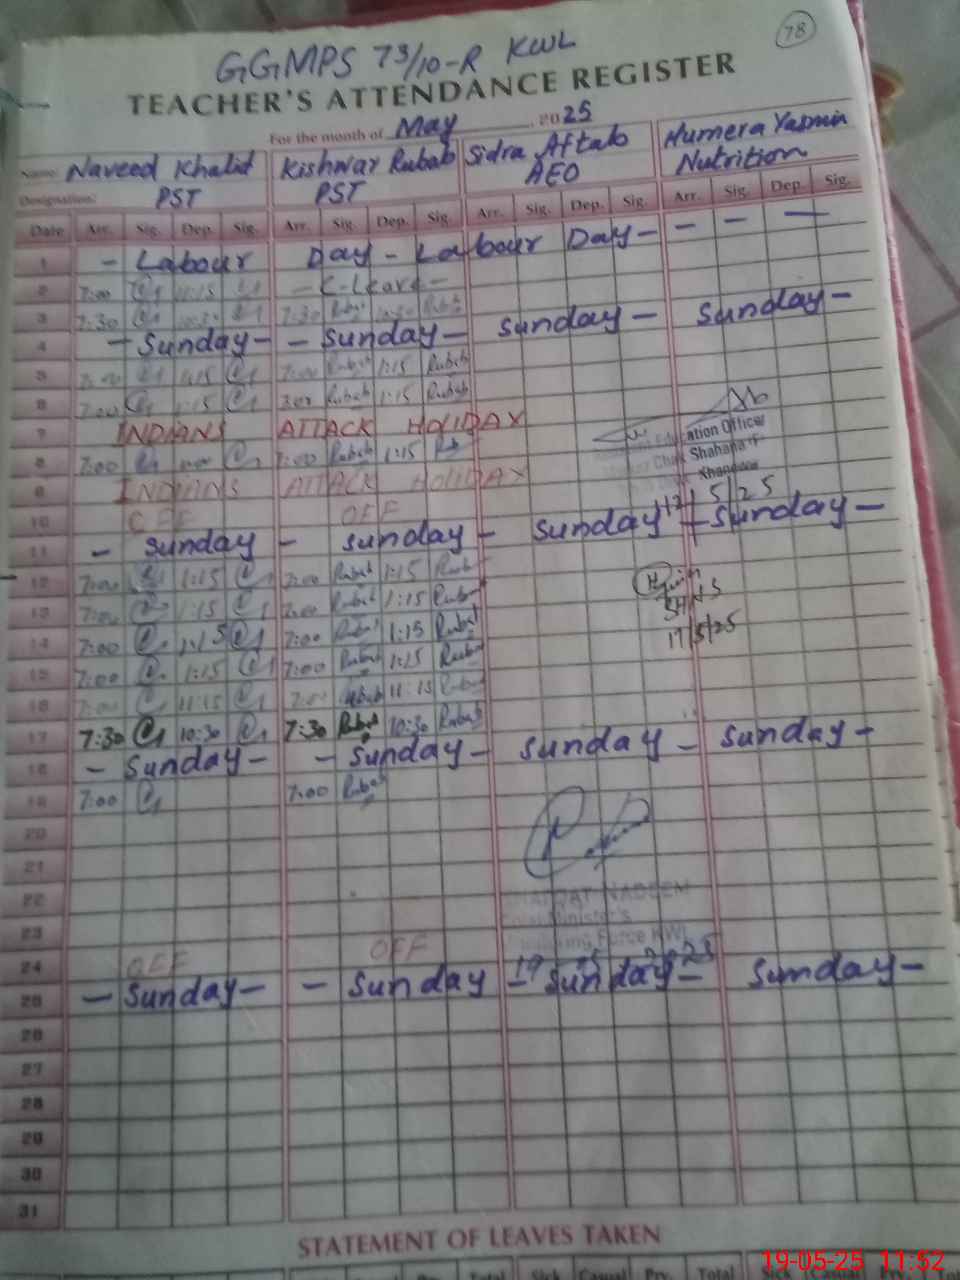 78
GGMPS 73/10-R KWL
TEACHER'S ATTENDANCE REGISTER
For the month of May 2025
Name: Naveed Khalid Kishwar Rubab Sidra Aftab Humera Yasmin
Designation: PST PST AEO Nutrition
Date Arr. Sig. Dep. Sig. Arr. Sig. Dep. Sig. Arr. Sig. Dep. Sig. Arr. Sig. Dep. Sig.
1 - Labour Day - Labour Day - - - -
2 7:00 11:15 - C-Leave -
3 7:30 10:30 7:30 Rubab 10:30 Rubab
4 - Sunday - - Sunday - Sunday - Sunday -
5 7:00 1:15 7:00 Rubab 1:15 Rubab
6 7:00 1:15 7:00 Rubab 1:15 Rubab
7 INDIANS ATTACK HOLIDAY
8 7:00 7:00 Rubab 1:15 Rub
Education Officer
Shahana
Khanewal
9 INDIANS ATTACK HOLIDAY
12/5/25
10 OFF OFF
11 - Sunday - Sunday - Sunday - Sunday -
12 7:00 1:15 7:00 Rubab 1:15 Rubab
13 7:00 1:15 7:00 Rubab 1:15 Rubab
14 7:00 1:15 7:00 Rubab 1:15 Rubab
17/5/25
15 7:00 1:15 7:00 Rubab 1:15 Rubab
16 7:00 11:15 7:00 Rubab 11:15 Rubab
17 7:30 10:30 7:30 Rubab 10:30 Rubab
18 - Sunday - - Sunday - Sunday - Sunday -
19 7:00 7:00 Rubab
20
21
22
NADEEM
Chief Minister's
23
Monitoring Force KWL
24 OFF OFF
25 - Sunday - - Sunday - Sunday - Sunday -
26
27
28
29
30
31
STATEMENT OF LEAVES TAKEN
Total Sick Casual Prv. Total
19-05-25 11:52